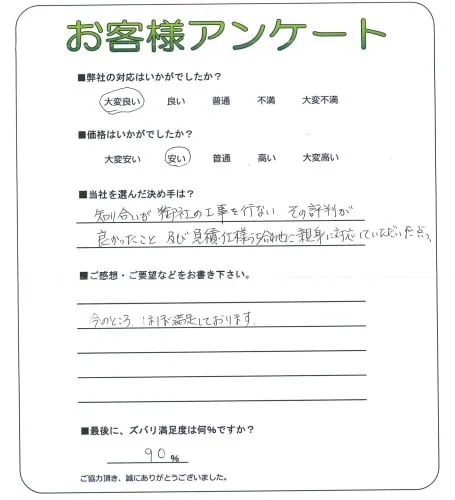 お客様アンケート
■弊社の対応はいかがでしたか？
大変良い 良い 普通 不満 大変不満
■価格はいかがでしたか？
大変安い 安い 普通 高い 大変高い
■当社を選んだ決め手は？
知り合いが御社の工事を行ない、その評判が
良かったこと、及び見積・仕様打合他に親身に対応していただいた点。
■ご感想・ご要望などをお書き下さい。
今のところ、ほぼ満足しております。
■最後に、ズバリ満足度は何％ですか？
90 %
ご協力頂き、誠にありがとうございました。